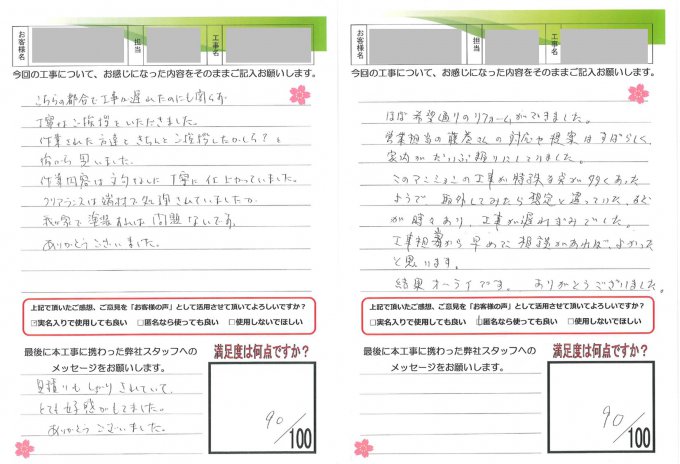 お客様名
担当
工事名
今回の工事について、お感じになった内容をそのままご記入お願いします。
こちらの都合で工事が遅れたのにも関らず
丁寧なご挨拶をいただきました。
作業された方達ときちんとご挨拶したかしら？と
後から思いました。
作業内容は文句なしに丁寧に仕上がっていました。
クリアランスは端材で処理されていましたが
我が家で塗装すれば問題ないです。
ありがとうございました。
上記で頂いたご感想、ご意見を「お客様の声」として活用させて頂いてよろしいですか？
☑実名入りで使用しても良い □匿名なら使っても良い □使用しないでほしい
最後に本工事に携わった弊社スタッフへの
メッセージをお願いします。
見積りもしっかりされていて、
とても好感がもてました。
ありがとうございました。
満足度は何点ですか？
90
/100
お客様名
担当
工事名
今回の工事について、お感じになった内容をそのままご記入お願いします。
ほぼ希望通りのリフォームができました。
営業担当の藤巻さんの対応や提案はすばらしく、
家内がだいぶ頼りにしてました。
このマンションの工事が特殊な点が多くあった
ようで、取外してみたら想定と違っていた、など
が時々あり、工事が遅れぎみでした。
工事担当から早めに相談があれば、よかった
と思います。
結果オーライです。ありがとうございました。
上記で頂いたご感想、ご意見を「お客様の声」として活用させて頂いてよろしいですか？
□実名入りで使用しても良い ☑匿名なら使っても良い □使用しないでほしい
最後に本工事に携わった弊社スタッフへの
メッセージをお願いします。
満足度は何点ですか？
90
/100